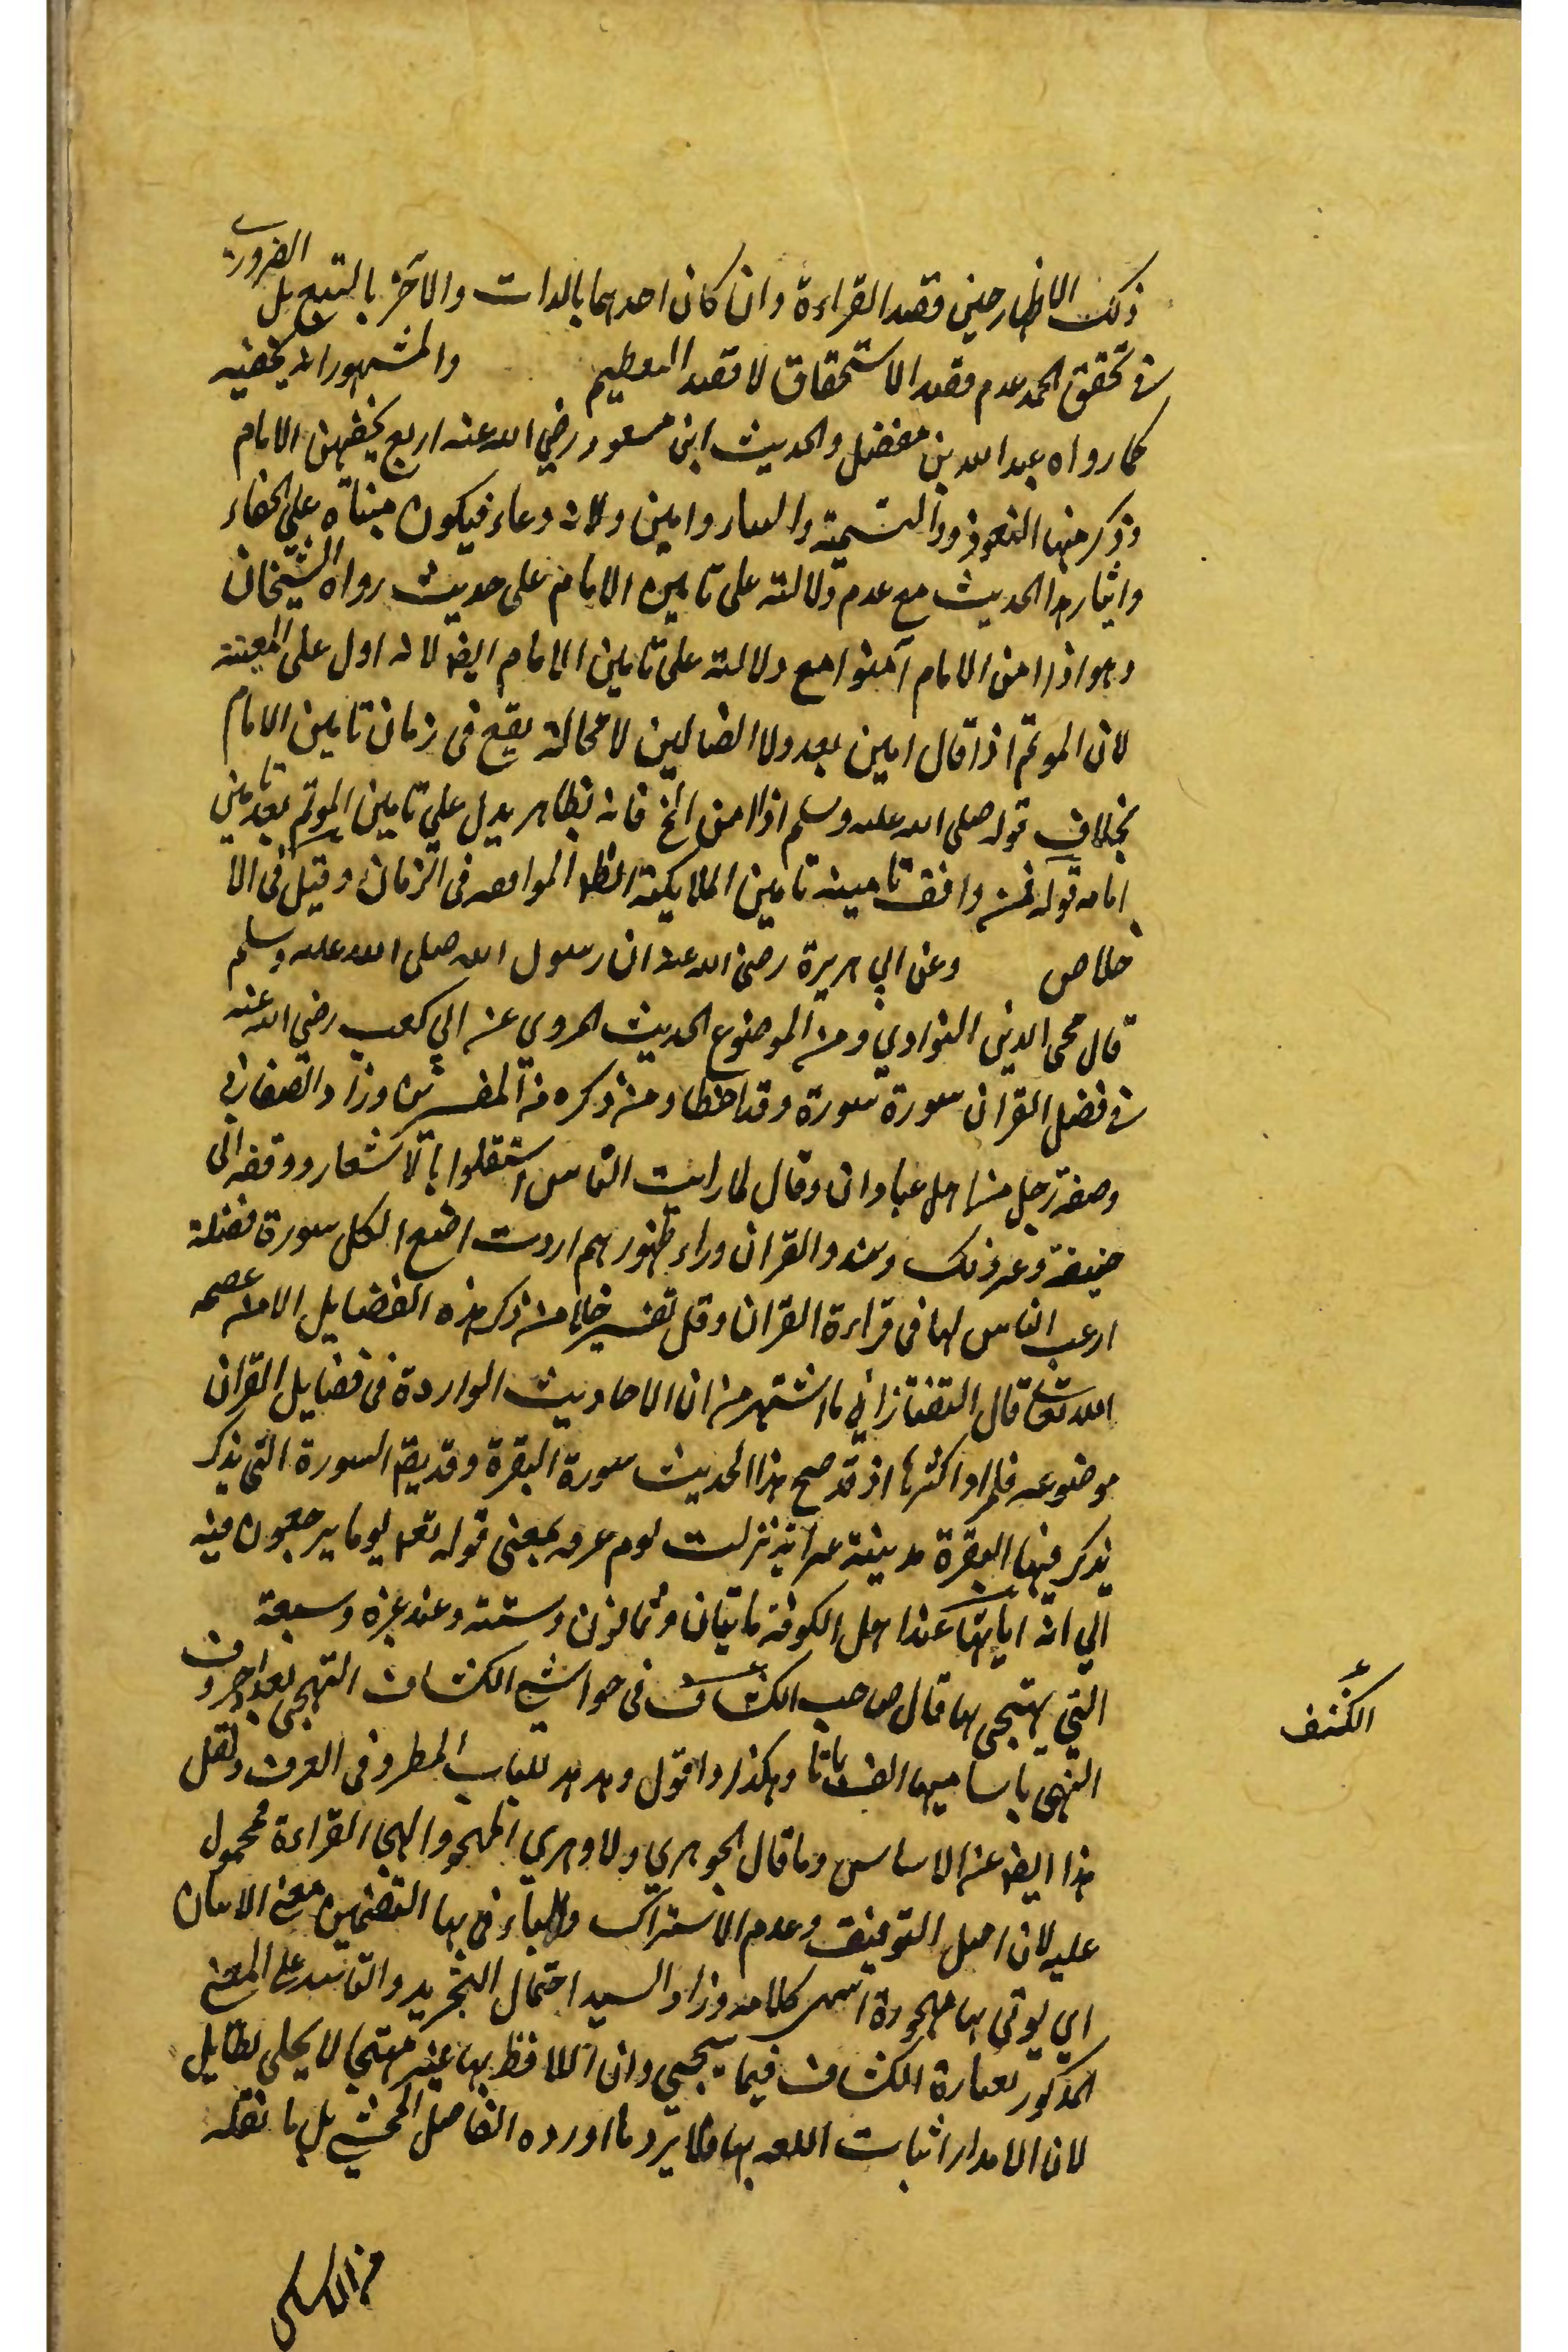 ذلك الاظهار حين قصد القراءة وان كان احدهما بالذات والآخر بالتبع بل الضروري
في تحقق الحمد عدم قصد الاستحقاق لا قصد التعظيم والمشهور انه يخفيه
كما رواه عبد الله بن مغفل والحديث ابن مسعود رضي الله عنه اربع يخفيهن الامام
وذكر منها التعوذ والتسمية وامين ولانه دعاء فيكون مبناه على الخفاء
وايثار هذا الحديث مع عدم دلالته على تامين الامام على حديث رواه الشيخان
وهو اذا امن الامام آمنوا مع دلالته على تامين الامام ايضا لانه ادل على المعية
لان الموتم اذا قال امين بعد ولا الضالين لا محالة يقع في زمان تامين الامام
بخلاف قوله صلى الله عليه وسلم اذا امن الخ فانه بظاهر يدل على تامين الموتم بعد تامين
امامه قوله فمن وافق تامينه تامين الملايكة الموافقه في الزمان وقيل في الا
خلاص وعن ابي هريرة رضي الله عنه ان رسول الله صلى الله عليه وسلم
قال محي الدين النواوي ومن الموضوع الحديث المروي عن ابي كعب رضي الله عنه
في فضل القران سورة سورة وقد اخطاء من ذكره من المفسرين وزاد الصغاني
وضعه رجل من اهل عبادان وقال لما رايت الناس اشتغلوا بالاشعار وفقه ابي
حنيفة وغير ذلك ونبذوا القران وراء ظهورهم اردت اضع لكل سورة فضيلة
ارغب الناس لها في قراءة القران وقل تفسير خلا من ذكر هذه الفضايل الا من عصمه
الله تعالى قال التفتازاني ما اشتهر من ان الاحاديث الواردة في فضايل القران
موضوعه فالمراد اكثرها اذ قد صح هذا الحديث سورة البقرة وقد يقم السورة التي يذكر
يذكر فيها البقرة مدينة نزلت يوم عرفه بمعنى قوله تعم يوما يرجعون فيه
الي الله اياتها عند اهل الكوفة مايتان وثمانون وستة وعند غيره وسبعة
التي يتهجى بها قال صاحب الكشاف في حواشي الكشاف التهجي تعداد حروف
التهجي باساميها الف باتا وهكذا واقول وهذ هو المطر في العرف ونقل
هذا ايضا عن الاساس وما قال الجوهري الهجو والهجا القراءة محمول
عليه لان اصل التوفيق وعدم الاشتراك والباء في بها التضمين معنى الاتيان
اي يوتى بها مهجوة انتهى كلامه وزاد السيد احتمال التجريد والتاييد على المعنى
المذكور بعبارة الكشاف فيما يجي وان اللافظ بها غير متهجي لا يحلى بطايل
لان المدار اثبات اللغه بها فلا يرد ما اورده الفاضل المحشي بل ما نقله
الكشف